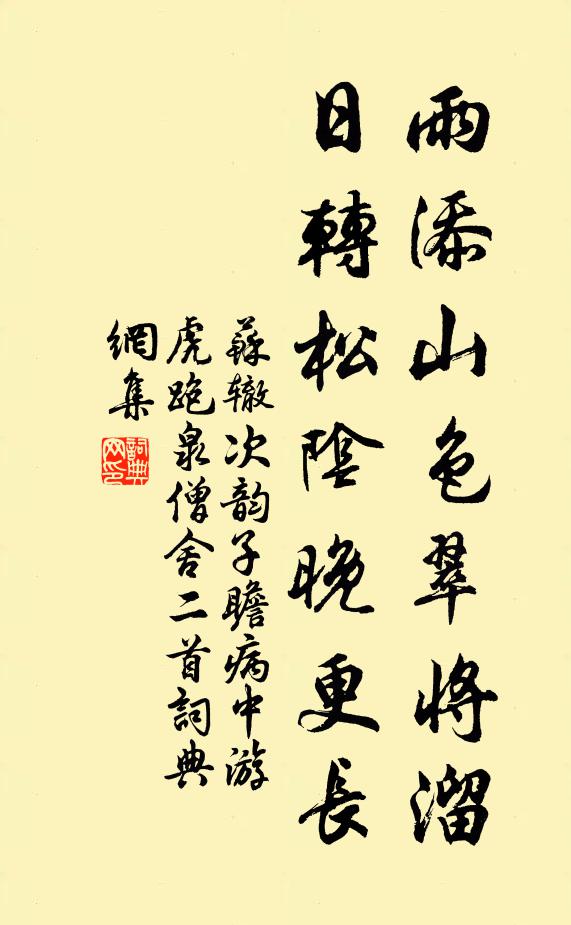 雨添山色翠將溜
日轉松陰晚更長
蘇辙次韵子瞻病中游
虎跑泉僧舍二首詞典
網集
詞典
网印